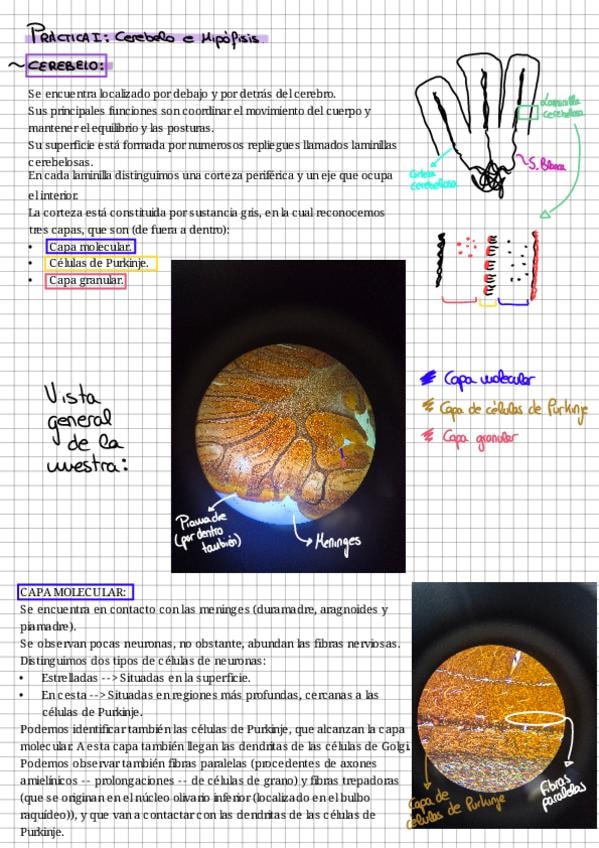 PRÁCTICA I: Cerebelo e Hipófisis.
~ CEREBELO:
Se encuentra localizado por debajo y por detrás del cerebro.
Sus principales funciones son coordinar el movimiento del cuerpo y
mantener el equilibrio y las posturas.
Su superficie está formada por numerosos repliegues llamados laminillas
cerebelosas.
En cada laminilla distinguimos una corteza periférica y un eje que ocupa
el interior.
La corteza está constituida por sustancia gris, en la cual reconocemos
tres capas, que son (de fuera a dentro):
• Capa molecular.
• Células de Purkinje.
• Capa granular.
Laminilla
cerebelosa
Corteza
cerebelosa
S. Blanca
Vista
general
de la
muestra:
Capa molecular
Capa de células de Purkinje
Capa granular
Piamadre
(por dentro
también)
Meninges
CAPA MOLECULAR:
Se encuentra en contacto con las meninges (duramadre, aragnoides y
piamadre).
Se observan pocas neuronas, no obstante, abundan las fibras nerviosas.
Distinguimos dos tipos de células de neuronas:
• Estrelladas --> Situadas en la superficie.
• En cesta --> Situadas en regiones más profundas, cercanas a las
células de Purkinje.
Podemos identificar también las células de Purkinje, que alcanzan la capa
molecular. A esta capa también llegan las dendritas de las células de Golgi.
Podemos observar también fibras paralelas (procedentes de axones
amielínicos -- prolongaciones -- de células de grano) y fibras trepadoras
(que se originan en el núcleo olivario inferior (localizado en el bulbo
raquídeo)), y que van a contactar con las dendritas de las células de
Purkinje.
Capa de
células de Purkinje
Fibras
paralelas